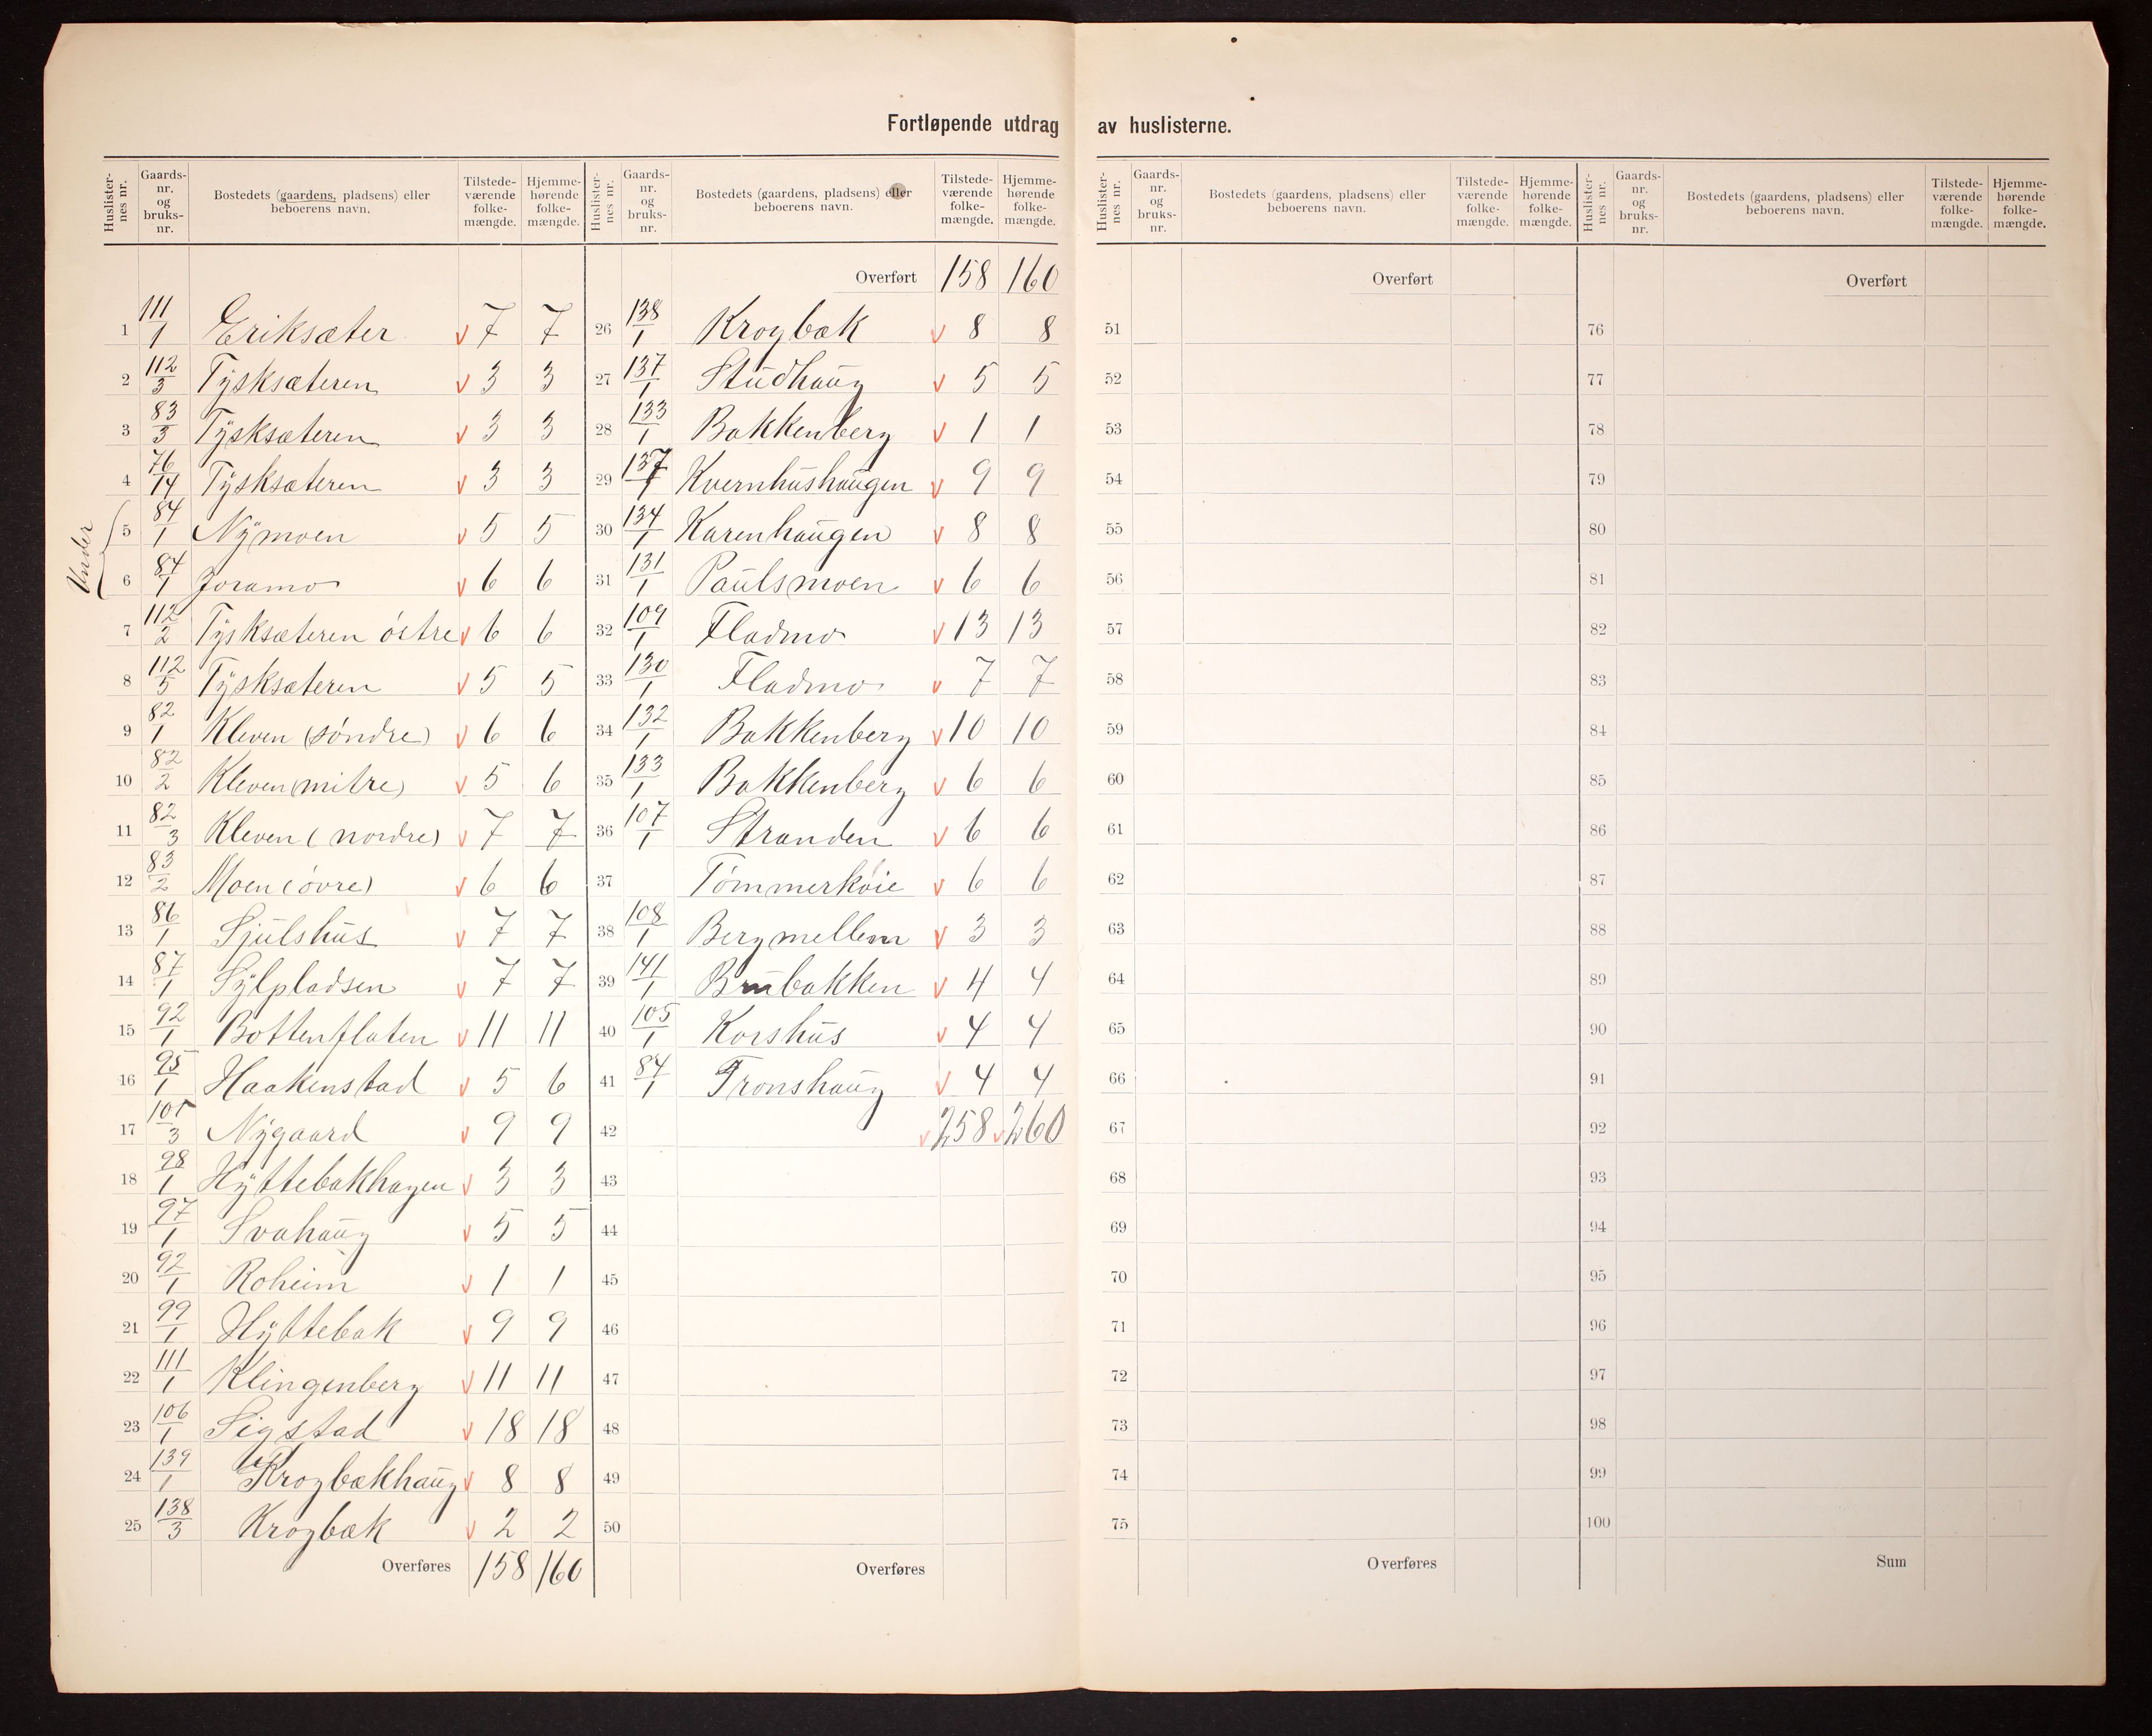 Fortløpende utdrag av huslisterne.
Huslisternes nr. Gaards-nr. og bruks-nr. Bostedets (gaardens, pladsens) eller beboerens navn. Tilstede-værende folke-mængde. Hjemme-hørende folke-mængde.
1 111/1 Eriksæter v 7 7
2 112/3 Tysksæteren v 3 3
3 83/3 Tysksæteren v 3 3
4 76/14 Tysksæteren v 3 3
Under
5 84/1 Nymoen v 5 5
6 84/1 Joramo v 6 6
7 112/2 Tysksæteren östre v 6 6
8 112/5 Tysksæteren v 5 5
9 82/1 Kleven (söndre) v 6 6
10 82/2 Kleven (mitre) v 5 6
11 82/3 Kleven (nordre) v 7 7
12 83/2 Moen (övre) v 6 6
13 86/1 Sjulshus v 7 7
14 87/1 Sylpladsen v 7 7
15 92/1 Bottenflaten v 11 11
16 95/1 Haakenstad v 5 6
17 101/3 Nygaard v 9 9
18 98/1 Hyttebakhagen v 3 3
19 97/1 Svahaug v 5 5
20 92/1 Roheim v 1 1
21 99/1 Hyttebak v 9 9
22 111/1 Klingenberg v 11 11
23 106/1 Sigstad v 18 18
24 139/1 Krogbækhaug v 8 8
25 138/3 Krogbæk v 2 2
Overføres 158 160
Huslisternes nr. Gaards-nr. og bruks-nr. Bostedets (gaardens, pladsens) eller beboerens navn. Tilstede-værende folke-mængde. Hjemme-hørende folke-mængde.
Overført 158 160
26 138/1 Krogbæk v 8 8
27 137/1 Studhaug v 5 5
28 133/1 Bakkenberg v 1 1
29 137/1 Kvernhushaugen v 9 9
30 134/1 Karenhaugen v 8 8
31 131/1 Paulsmoen v 6 6
32 109/1 Fladmo v 13 13
33 130/1 Fladmo v 7 7
34 132/1 Bakkenberg v 10 10
35 133/1 Bakkenberg v 6 6
36 107/1 Stranden v 6 6
37 Tömmerköie v 6 6
38 108/1 Bergmellem v 3 3
39 141/1 Brubakken v 4 4
40 105/1 Korshus v 4 4
41 84/1 Tronshaug v 4 4
42 v 258 v 260
43
44
45
46
47
48
49
50
Overføres
Huslisternes nr. Gaards-nr. og bruks-nr. Bostedets (gaardens, pladsens) eller beboerens navn. Tilstede-værende folke-mængde. Hjemme-hørende folke-mængde.
Overført
51
52
53
54
55
56
57
58
59
60
61
62
63
64
65
66
67
68
69
70
71
72
73
74
75
Overføres
Huslisternes nr. Gaards-nr. og bruks-nr. Bostedets (gaardens, pladsens) eller beboerens navn. Tilstede-værende folke-mængde. Hjemme-hørende folke-mængde.
Overført
76
77
78
79
80
81
82
83
84
85
86
87
88
89
90
91
92
93
94
95
96
97
98
99
100
Sum